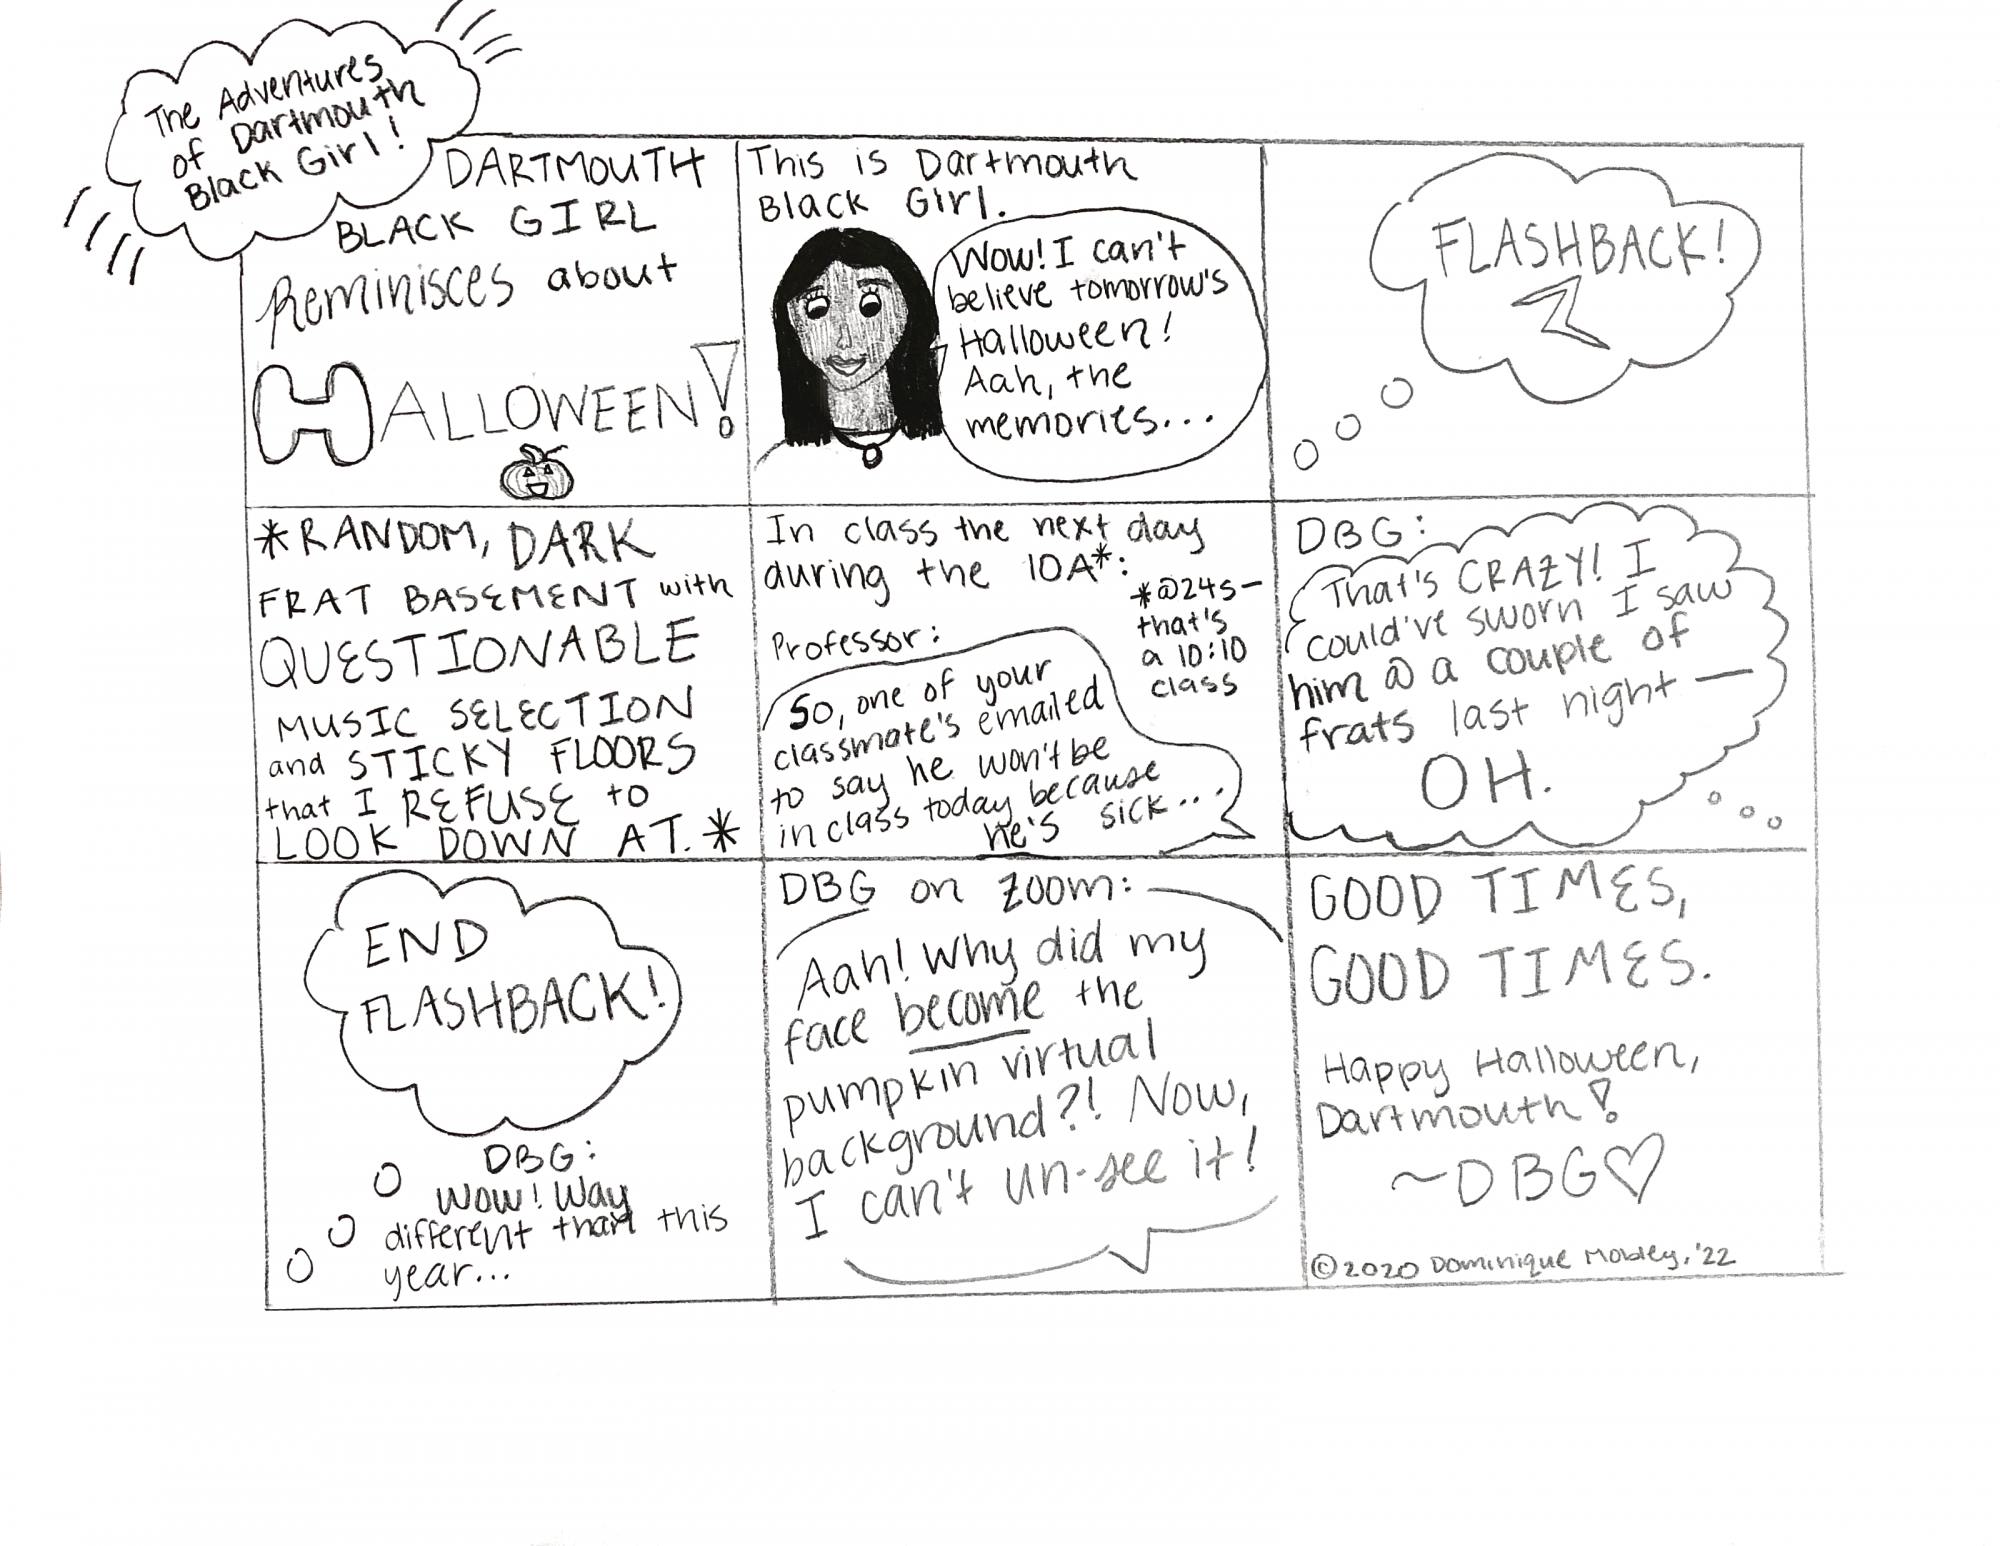 The Adventures
of Dartmouth
Black Girl!
DARTMOUTH
BLACK GIRL
Reminisces about
HALLOWEEN!
This is Dartmouth
Black Girl.
Wow! I can't
believe tomorrow's
Halloween!
Aah, the
memories...
FLASHBACK!
*RANDOM, DARK
FRAT BASEMENT with
QUESTIONABLE
MUSIC SELECTION
and STICKY FLOORS
that I REFUSE to
LOOK DOWN AT.*
In class the next day
during the 10A*:
*@24s—
that's
a 10:10
class
Professor:
So, one of your
classmate's emailed
to say he won't be
in class today because
he's sick...
DBG:
That's CRAZY! I
could've sworn I saw
him @ a couple of
frats last night —
OH.
END
FLASHBACK!
DBG:
Wow! Way
different than this
year...
DBG on Zoom:
Aah! Why did my
face become the
pumpkin virtual
background?! Now,
I can't un-see it!
GOOD TIMES,
GOOD TIMES.
Happy Halloween,
Dartmouth!
~DBG♡
©2020 Dominique Mobley, '22